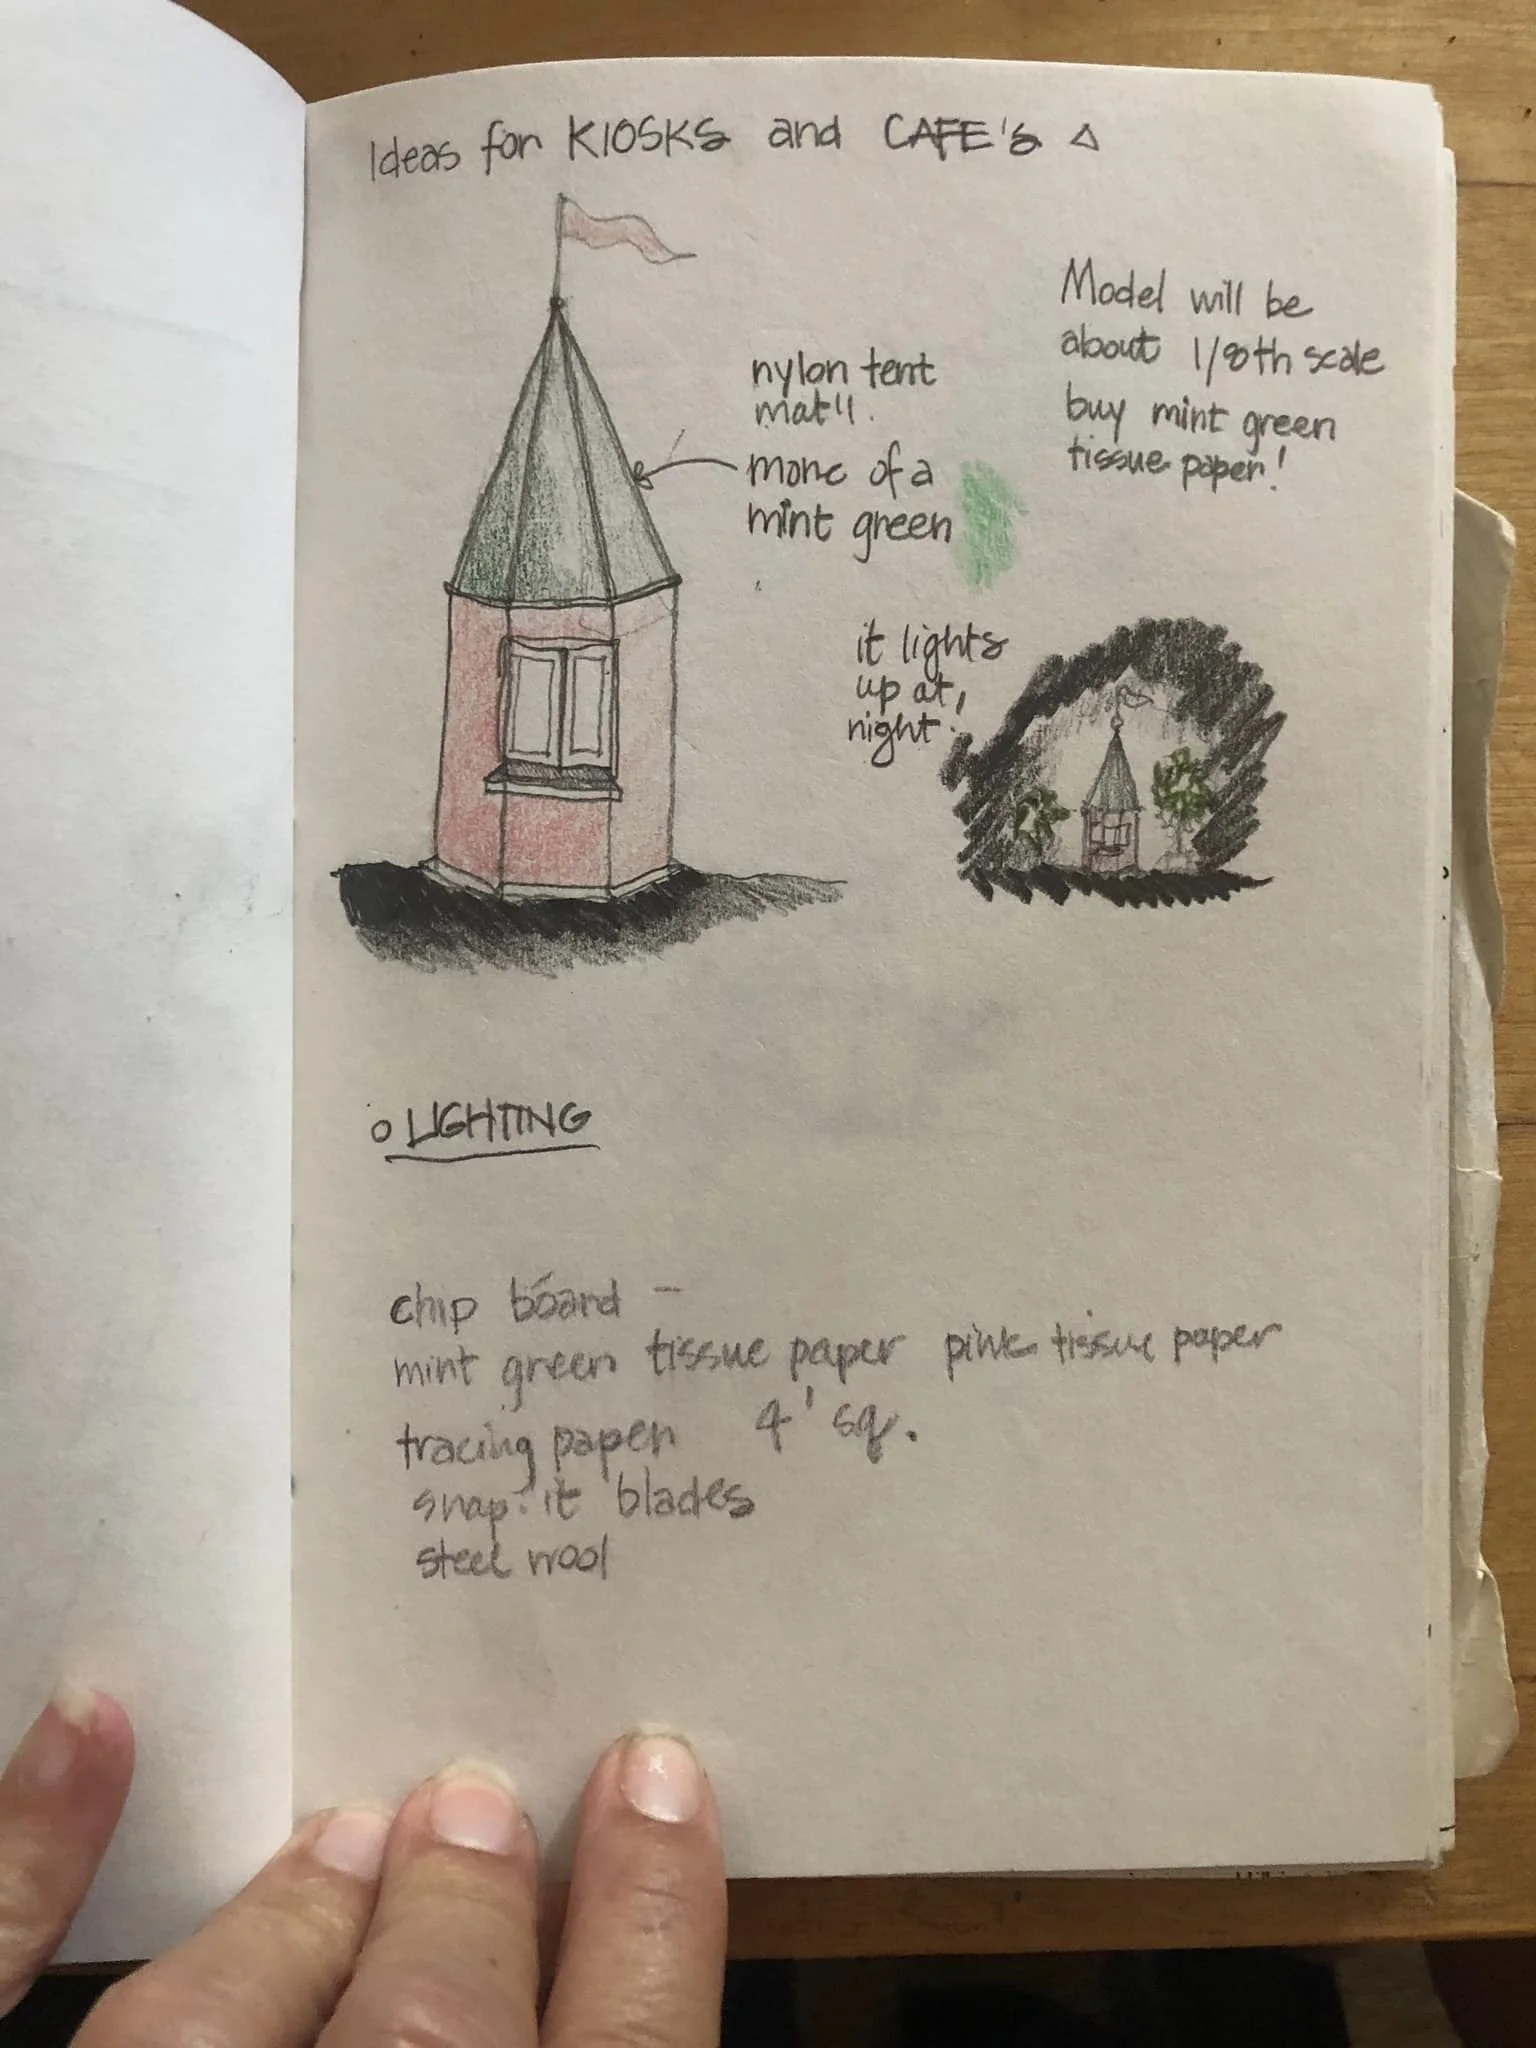 Ideas for KIOSKS and CAFE's
Model will be
about 1/8th scale
buy mint green
tissue paper!
nylon tent
mat'l.
more of a
mint green
it lights
up at
night!
LIGHTING
chip board -
mint green tissue paper pink tissue paper
tracing paper 4' sq.
snap-it blades
steel wool